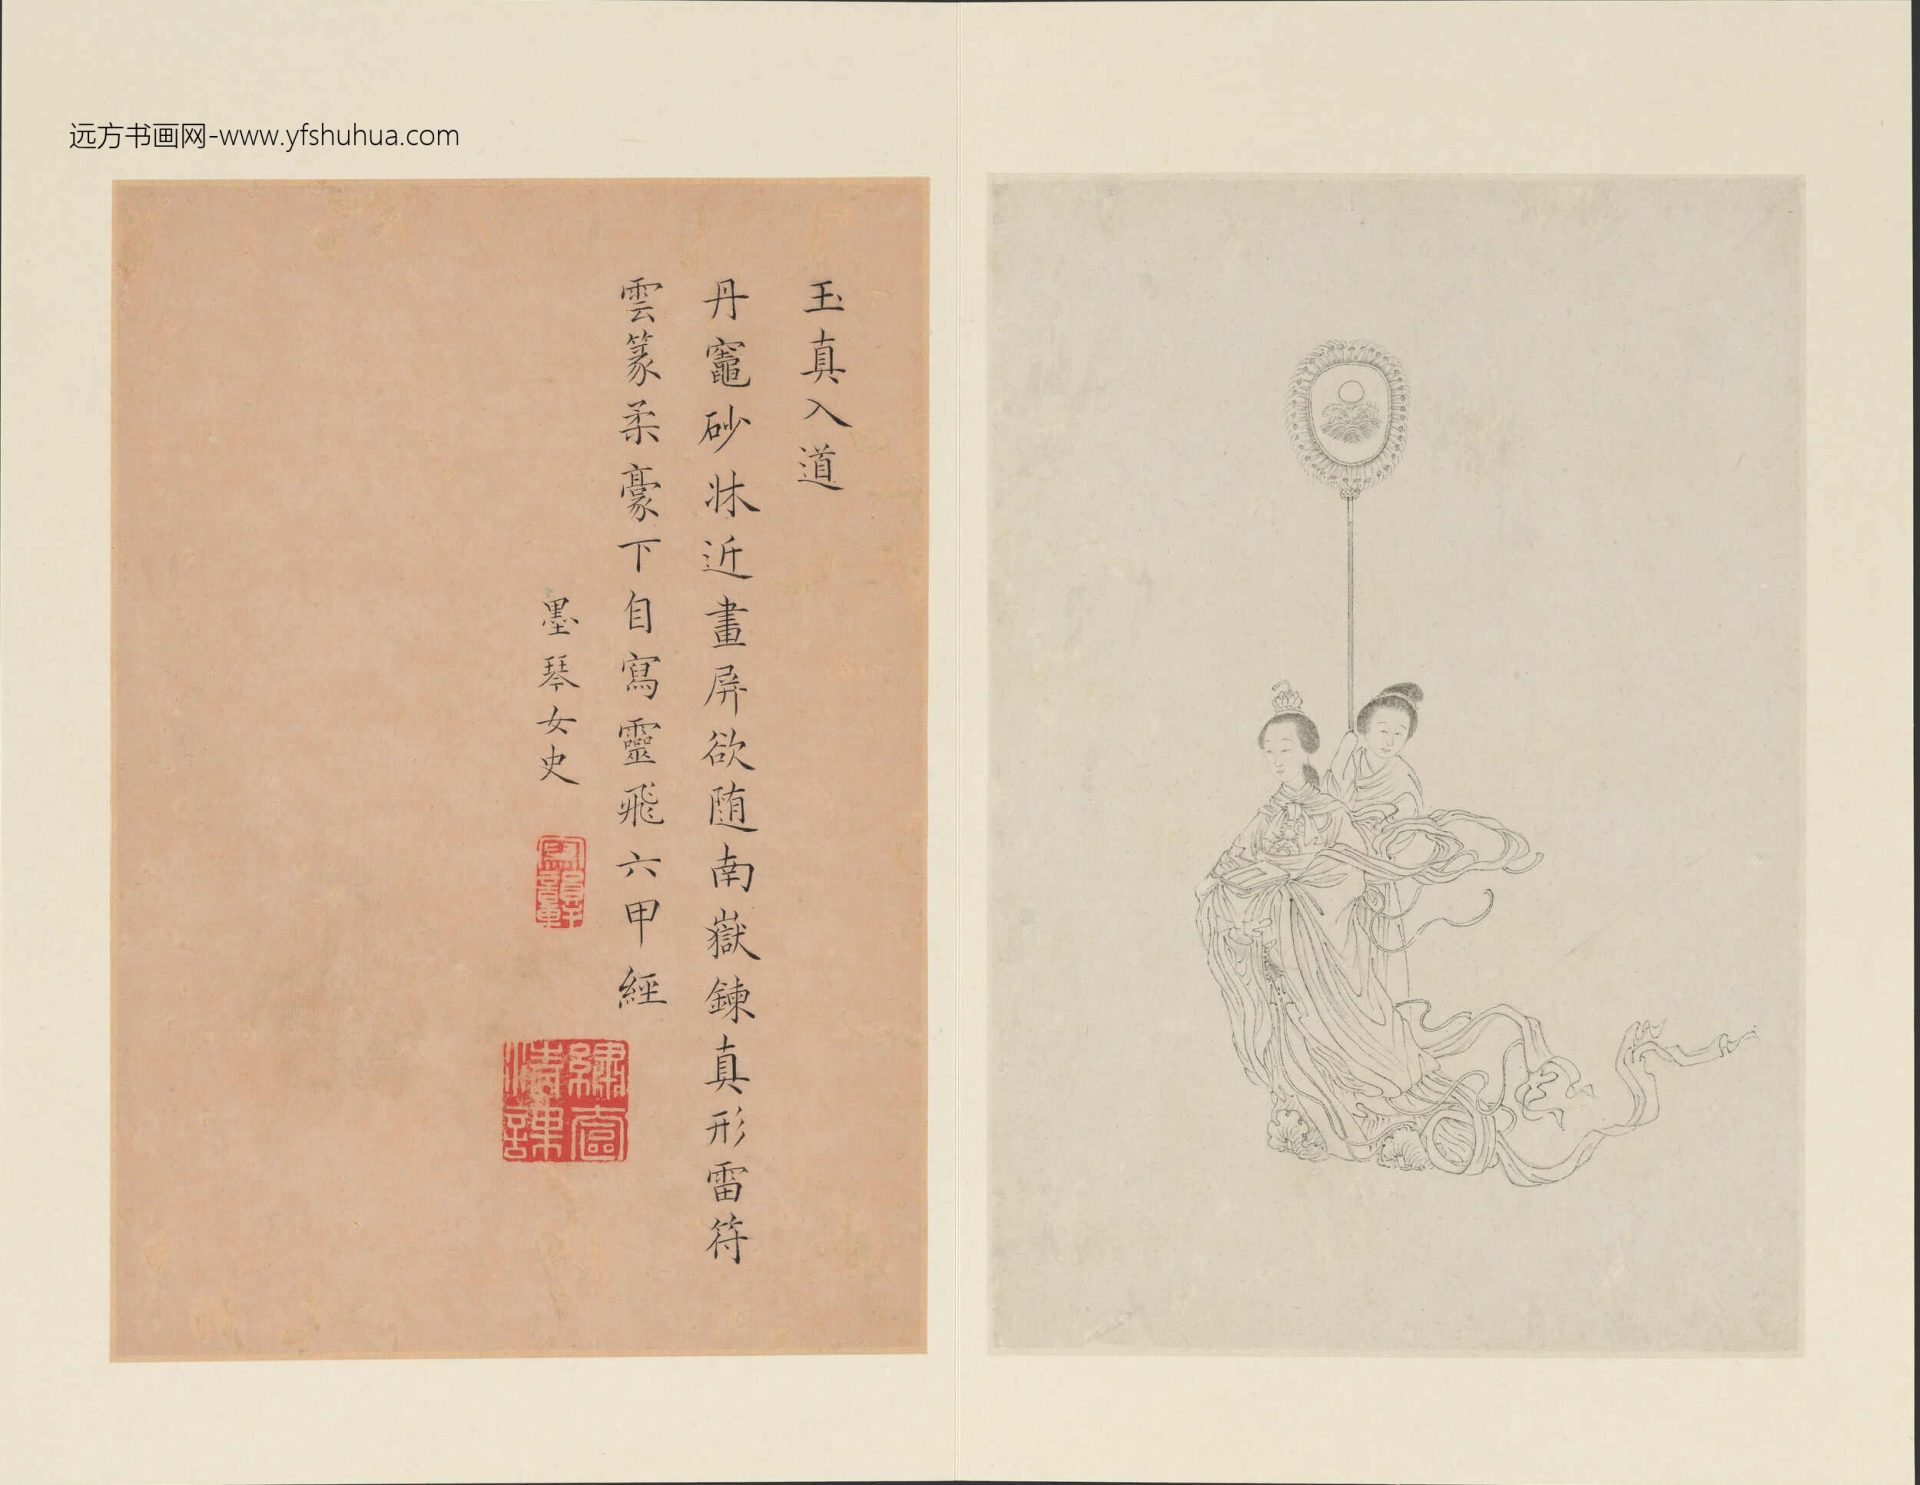 远方书画网-www.yfshuhua.com
玉真入道
丹竈砂牀近畫屏欲随南嶽鍊真形雷符
雲篆柔豪下自寫靈飛六甲經
墨琴女史
繡窗
清課